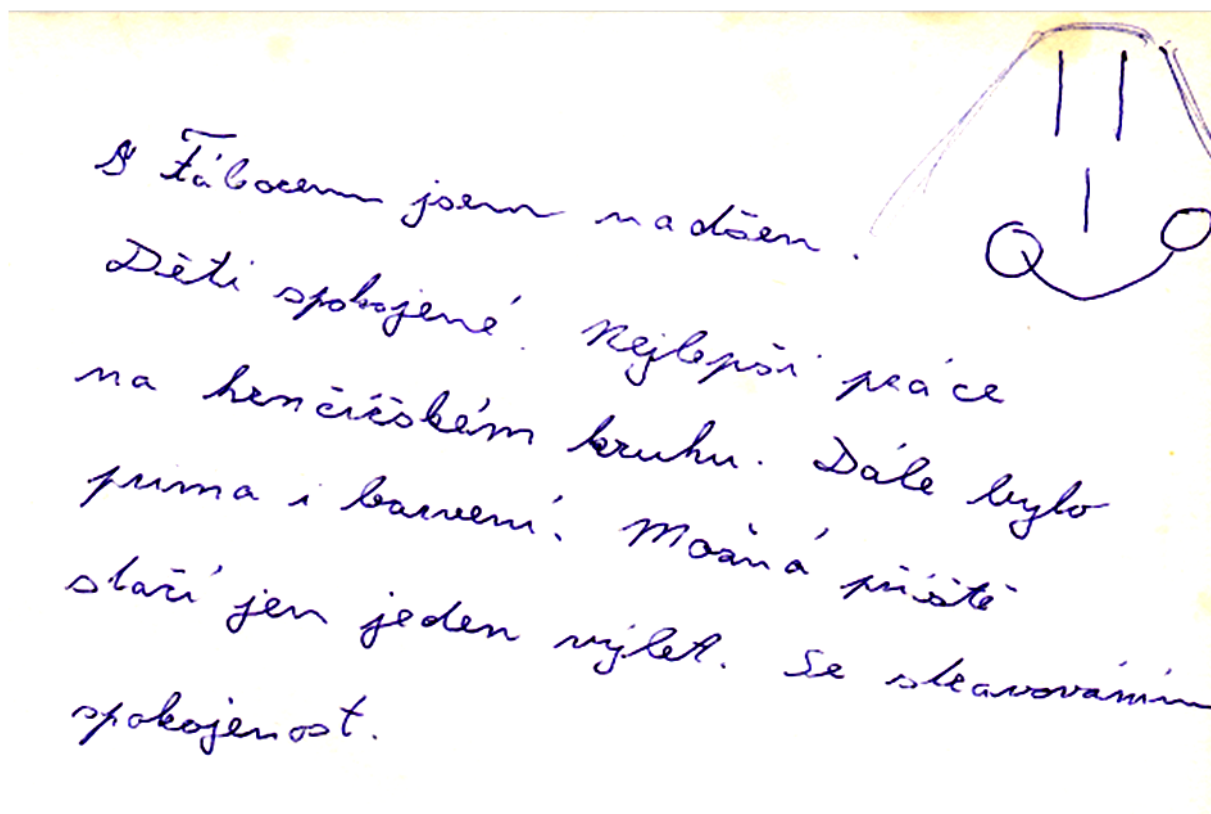 S Táborem jsem nadšen.
Děti spokojené. Nejlepší práce
na hrnčířském kruhu. Dále bylo
prima i barvení. Možná příště
stačí jen jeden výlet. Se stravováním
spokojenost.